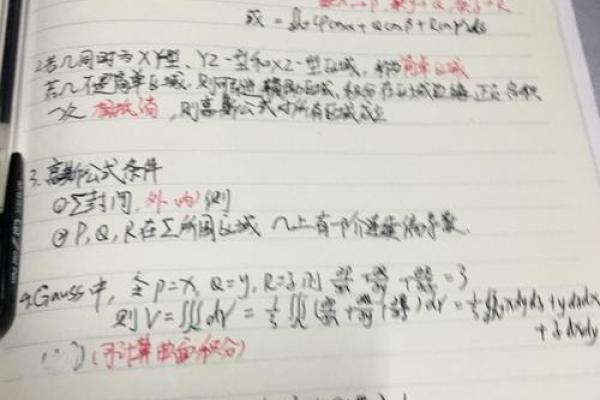 或 = ∯ (Pcosα + Qcosβ + Rcosγ)ds
2.若几何同时为XY型、YZ-型和XZ-型区域, 称为简单区域
若Ω不是简单区域, 则可引进辅助区域, 积分在区域边缘正负各积
一次 相抵消, 则高斯公式对所有区域成立
3.高斯公式条件
①Σ封闭, 外(内)侧
②P, Q, R在Σ所围区域Ω上有一阶连续偏导数.
4.Gauss中, 令P=x, Q=y, R=z, 则 ∂P/∂x + ∂Q/∂y + ∂R/∂z = 3
则V = ∭dV = 1/3 ∭(∂P/∂x + ∂Q/∂y + ∂R/∂z)dV = 1/3 ∯xdydz + ydzdx
+ zdxdy
(可计算曲面积分)